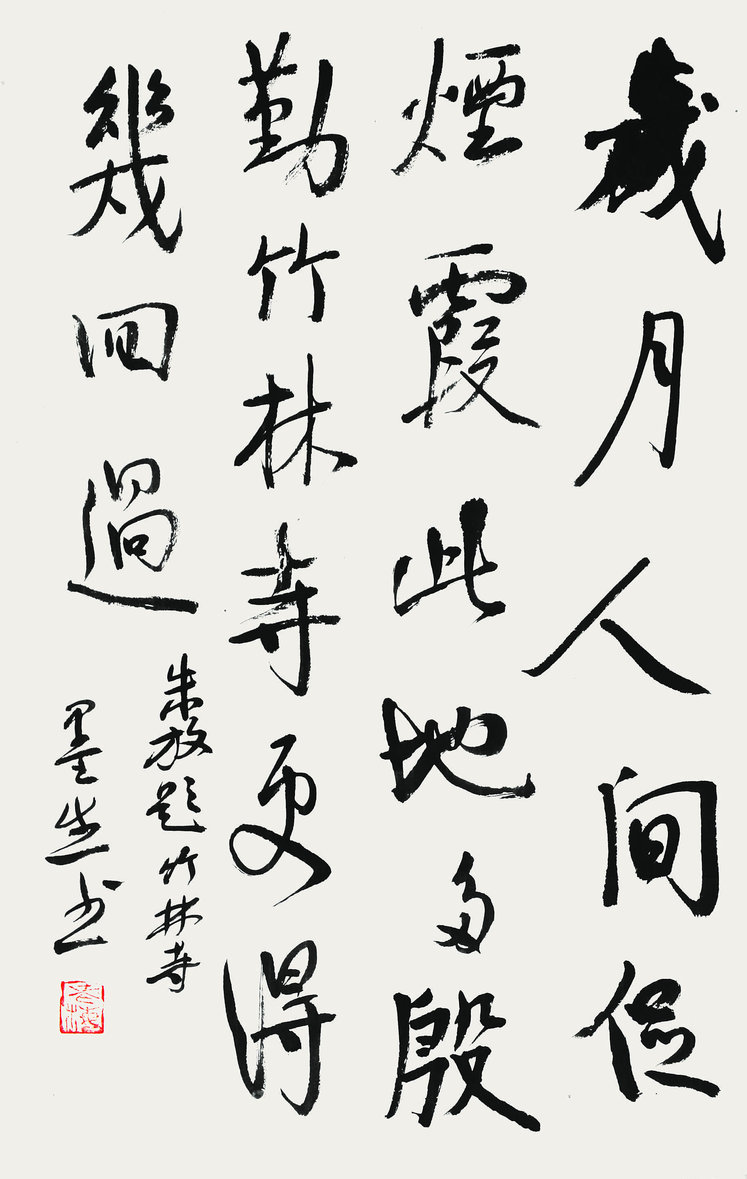 歲月人间促
煙霞此地多殷
勤竹林寺更得
幾回過
朱放题竹林寺
墨书